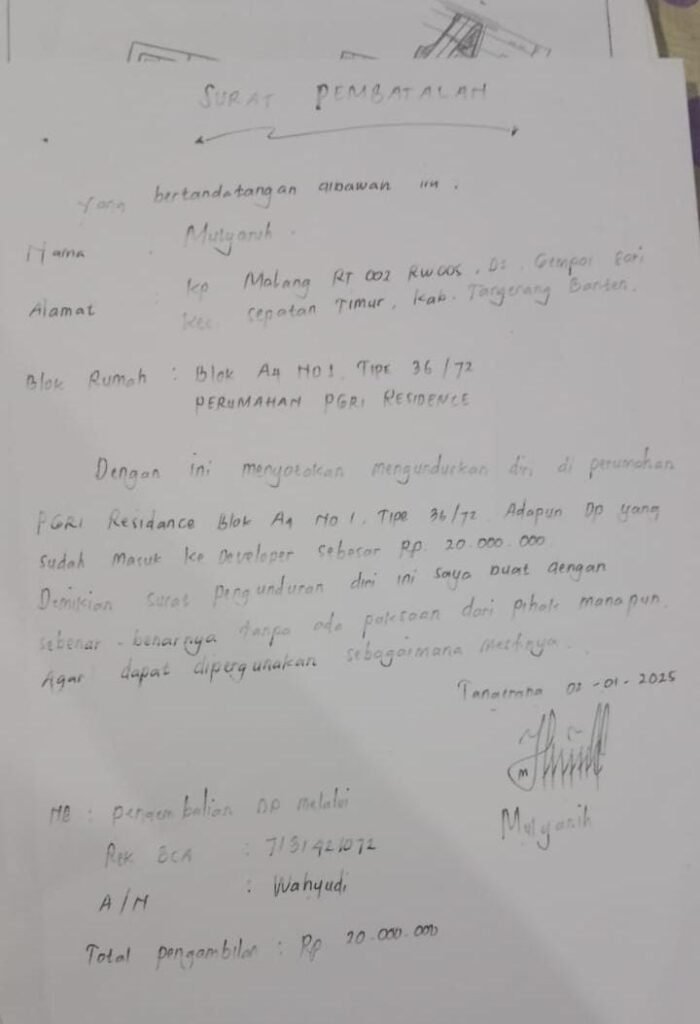 SURAT PEMBATALAN
Yang bertandatangan dibawah ini :
Nama : Mulyanih.
Alamat : Kp Malang RT 002 RW 005, Ds. Gempol Sari
Kec. Sepatan Timur, Kab. Tangerang Banten.
Blok Rumah : Blok A4 No 1, Tipe 36/72
PERUMAHAN PGRI RESIDENCE
Dengan ini menyatakan mengundurkan diri di perumahan
PGRI Residance Blok A4 No 1, Tipe 36/72. Adapun Dp yang
sudah masuk ke Developer sebesar Rp. 20.000.000
Demikian surat pengunduran diri ini saya buat dengan
sebenar-benarnya tanpa ada paksaan dari pihak manapun.
Agar dapat dipergunakan sebagaimana mestinya.
Tangerang 02-01-2025
Mulyanih
NB : pengembalian DP melalui
Rek BCA :
A/N : Wahyudi
Total pengambilan : Rp 20.000.000